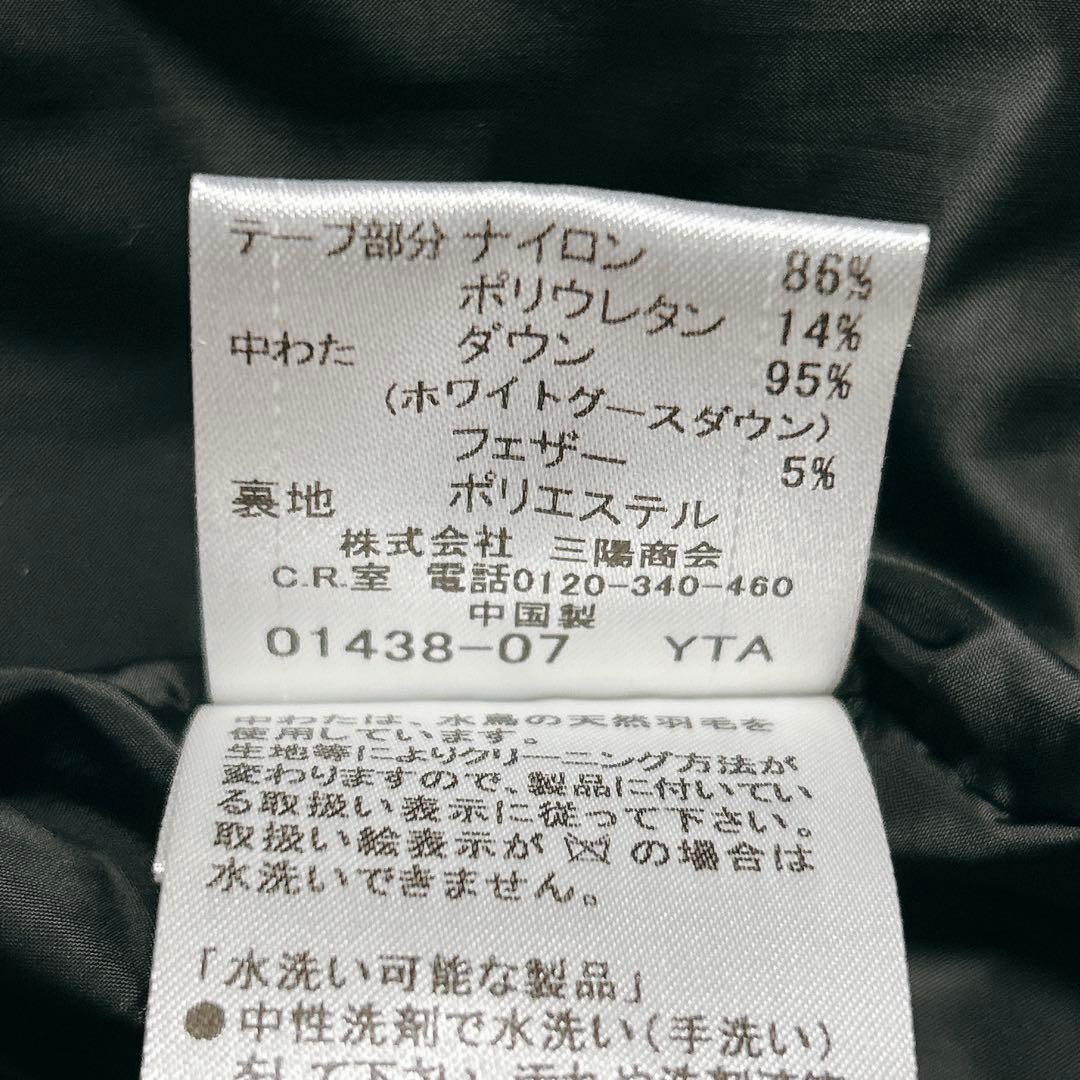 テープ部分 ナイロン 86%
ポリウレタン 14%
中わた ダウン 95%
(ホワイトグースダウン)
フェザー 5%
裏地 ポリエステル
株式会社 三陽商会
C.R.室 電話0120-340-460
中国製
01438-07 YTA
中わたは、水鳥の天然羽毛を
使用しています。
生地等によりクリーニング方法が
変わりますので、製品に付いてい
る取扱い表示に従って下さい。
取扱い絵表示が の場合は
水洗いできません。
「水洗い可能な製品」
●中性洗剤で水洗い(手洗い)